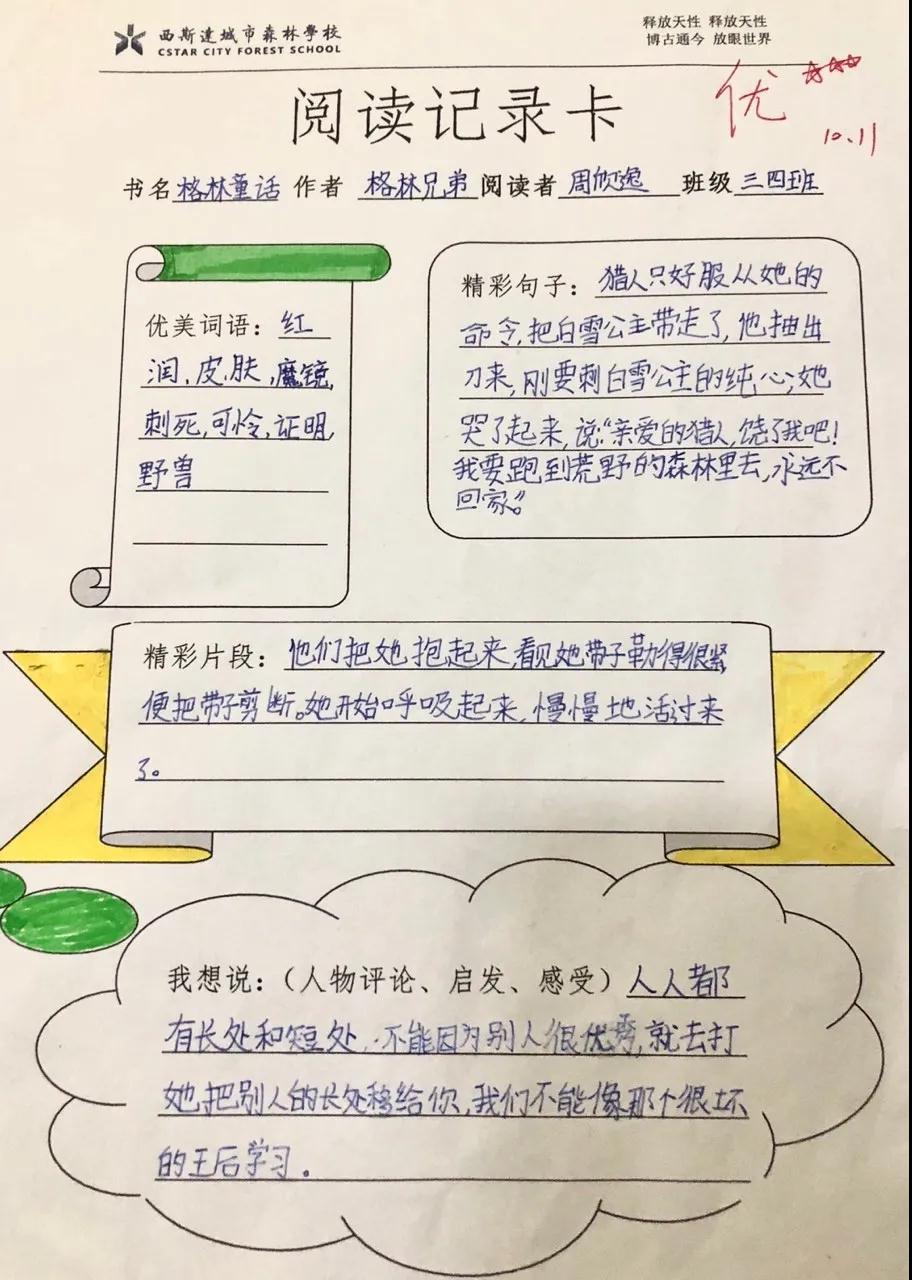 西斯达城市森林学校
CSTAR CITY FOREST SCHOOL
释放天性 释放天性
博古通今 放眼世界
优
10.11
阅读记录卡
书名 格林童话 作者 格林兄弟 阅读者 周欣逸 班级 三四班
优美词语：红
润,皮肤,魔镜,
刺死,可怜,证明,
野兽
精彩句子：猎人只好服从她的
命令,把白雪公主带走了,他抽出
刀来,刚要刺白雪公主的纯心;她
哭了起来,说:“亲爱的猎人,饶了我吧!
我要跑到荒野的森林里去,永远不
回家。”
精彩片段：他们把她抱起来,看见她带子勒得很紧
便把带子剪断。她开始呼吸起来,慢慢地活过来
了。
我想说：（人物评论、启发、感受）人人都
有长处和短处,不能因为别人很优秀,就去打
她把别人的长处移给你,我们不能像那个很坏
的王后学习.